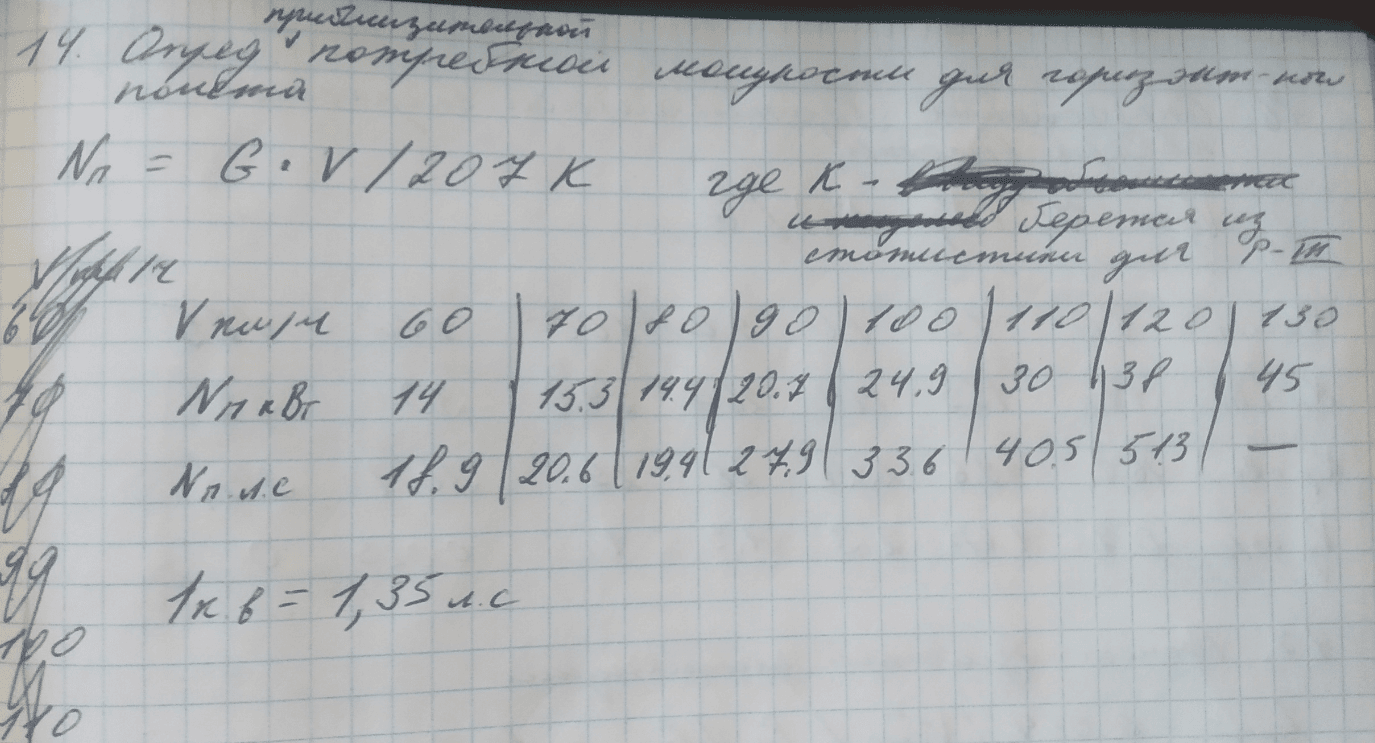 приблизительной
14. Опред потребной мощности для горизонт-ного
полета
Nп = G · V / 207 K где K -
берется из
статистики для P-III
V км/ч
60 V км/ч 60 70 80 90 100 110 120 130
70 Nп кВт 14 15.3 14.4 20.7 24.9 30 38 45
80 Nп л.с 18.9 20.6 19.4 27.9 33.6 40.5 51.3 —
90
1к.в = 1,35 л.с
100
110